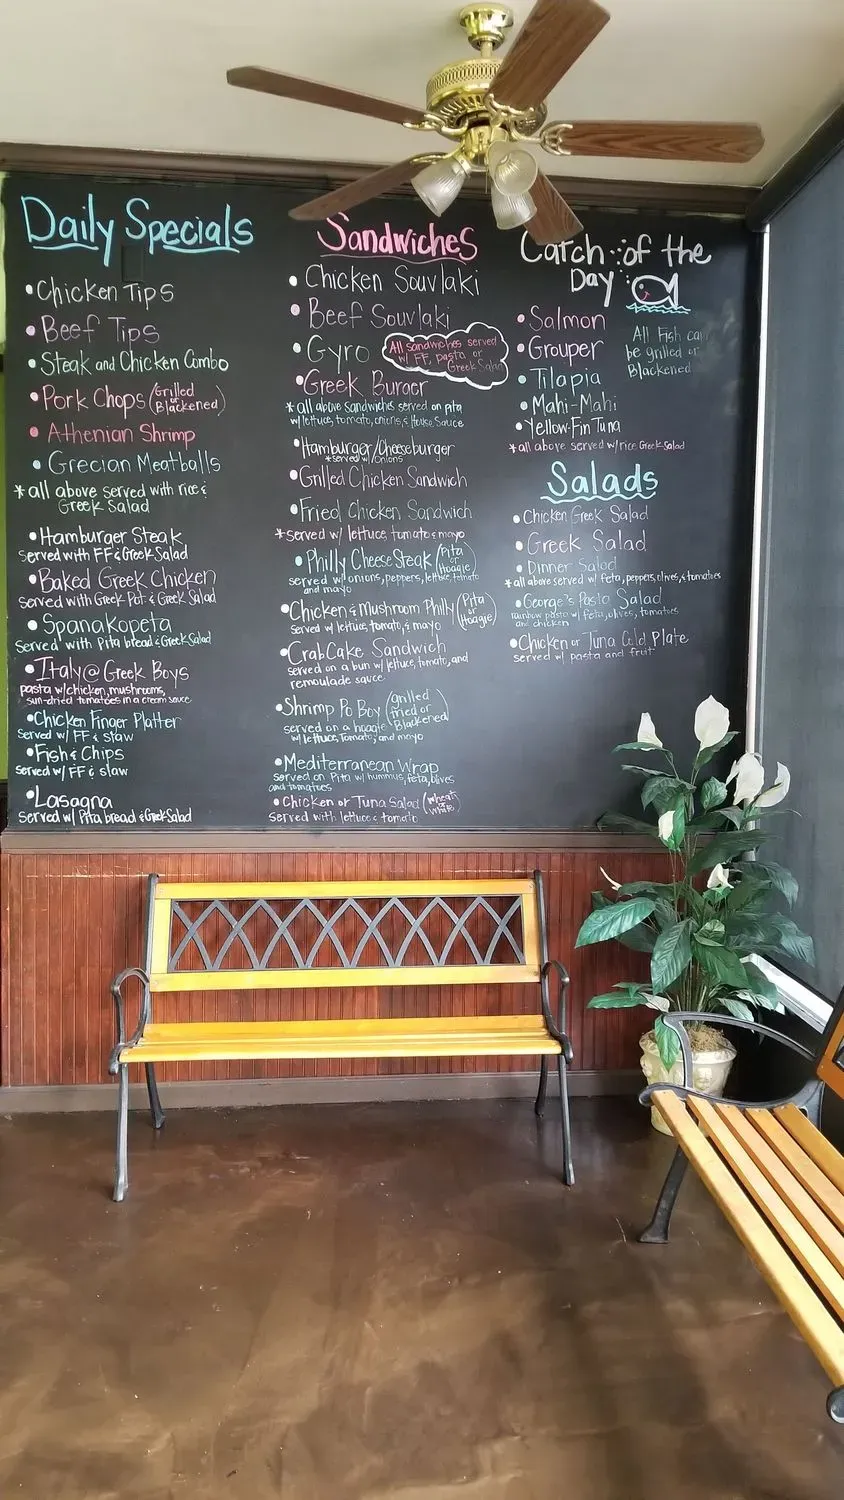 Daily Specials
• Chicken Tips
• Beef Tips
• Steak and Chicken Combo
• Pork Chops (Grilled or Blackened)
• Athenian Shrimp
• Grecian Meatballs
* all above served with rice &
Greek Salad
• Hamburger Steak
served with FF & Greek Salad
• Baked Greek Chicken
served with Greek Pot. & Greek Salad
• Spanakopeta
served with Pita bread & Greek Salad
• Italy @ Greek Boys
pasta w/ chicken, mushrooms,
sun-dried tomatoes in a cream sauce
• Chicken Finger Platter
served w/ FF & slaw
• Fish & Chips
served w/ FF & slaw
• Lasagna
served w/ Pita bread & Greek Salad
Sandwiches
• Chicken Souvlaki
• Beef Souvlaki
• Gyro
All sandwiches served
w/ FF, pasta or
Greek Salad
• Greek Burger
* all above sandwiches served on pita
w/ lettuce, tomato, onions, & House Sauce
• Hamburger/Cheeseburger
* served w/ onions
• Grilled Chicken Sandwich
• Fried Chicken Sandwich
* served w/ lettuce, tomato & mayo
• Philly Cheese Steak (Pita or Hoagie)
served w/ onions, peppers, lettuce, tomato
and mayo
• Chicken & Mushroom Philly (Pita or Hoagie)
served w/ lettuce, tomato, & mayo
• Crab Cake Sandwich
served on a bun w/ lettuce, tomato, and
remoulade sauce
• Shrimp Po Boy (grilled fried or Blackened)
served on a hoagie
w/ lettuce, tomato, and mayo
• Mediterranean Wrap
served on Pita w/ hummus, feta, olives
and tomatoes
• Chicken or Tuna Salad (wheat or white)
served with lettuce & tomato
Catch of the
Day
• Salmon
• Grouper
• Tilapia
• Mahi-Mahi
• Yellow-Fin Tuna
All Fish can
be grilled or
Blackened
* all above served w/ rice Greek Salad
Salads
• Chicken Greek Salad
• Greek Salad
• Dinner Salad
* all above served w/ feta, peppers, olives, & tomatoes
• George's Pasta Salad
rainbow pasta w/ feta, olives, tomatoes
and chicken
• Chicken or Tuna Cold Plate
served w/ pasta and fruit